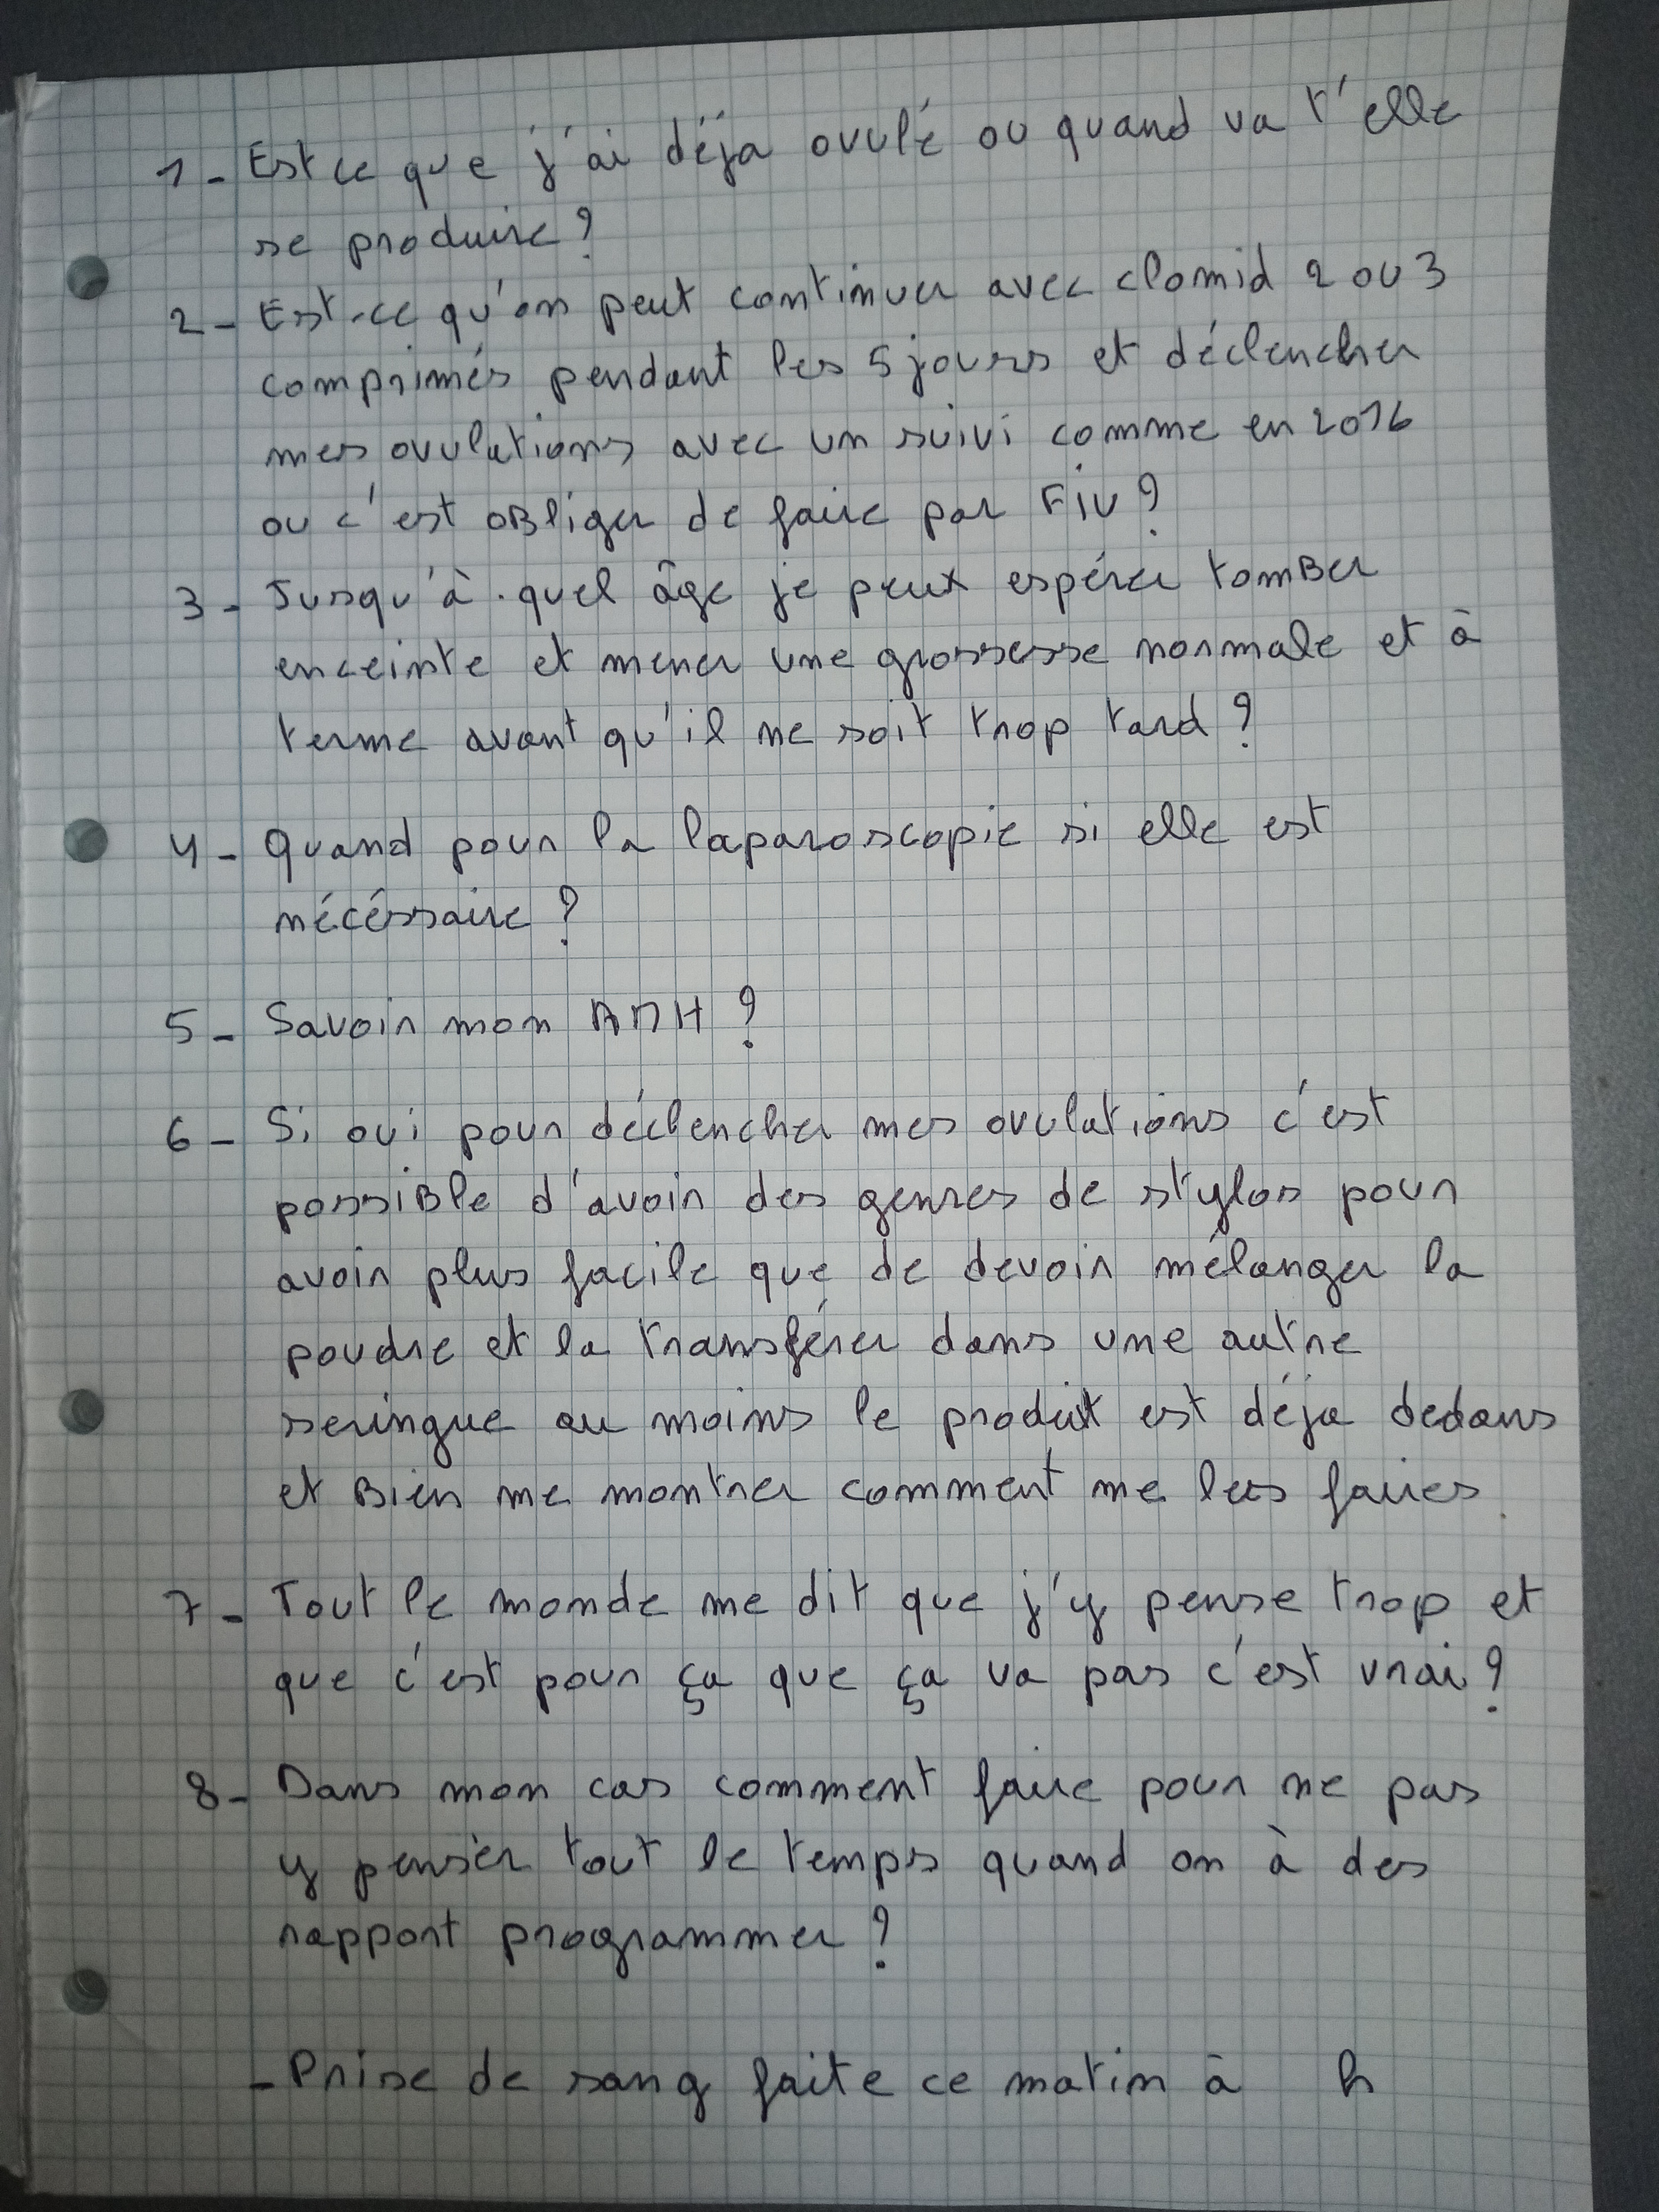 1 - Est ce que j'ai déja ovulé ou quand va t'elle
se produire ?
2 - Est-ce qu'on peut continuer avec clomid 2 ou 3
comprimés pendant les 5 jours et déclencher
mes ovulations avec un suivi comme en 2016
ou c'est oBliger de faire par FiV ?
3 - Jusqu'à quel âge je peux espérer tomBer
enceinte et mener une grossesse normale et à
terme avant qu'il ne soit trop tard ?
4 - Quand pour la laparoscopie si elle est
nécéssaire ?
5 - Savoir mon AMH ?
6 - Si oui pour déclencher mes ovulations c'est
possiBle d'avoir des genres de stylos pour
avoir plus facile que de devoir mélanger la
poudre et la transférer dans une autre
seringue au moins le produit est déja dedans
et Bien me montrer comment me les faires.
7 - Tout le monde me dit que j'y pense trop et
que c'est pour ça que ça va pas c'est vrai ?
8 - Dans mon cas comment faire pour ne pas
y penser tout le temps quand on à des
rapport programmer ?
- Prise de sang faite ce matin à h